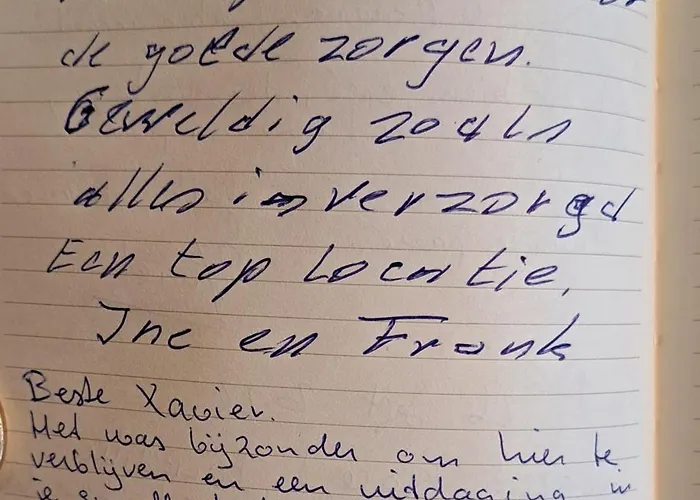 de goede zorgen.
Geweldig zoals
alles is verzorgd
Een top locatie,
Ine en Frank
Beste Xavier.
Het was bijzonder om hier te
verblijven en een uitdaging